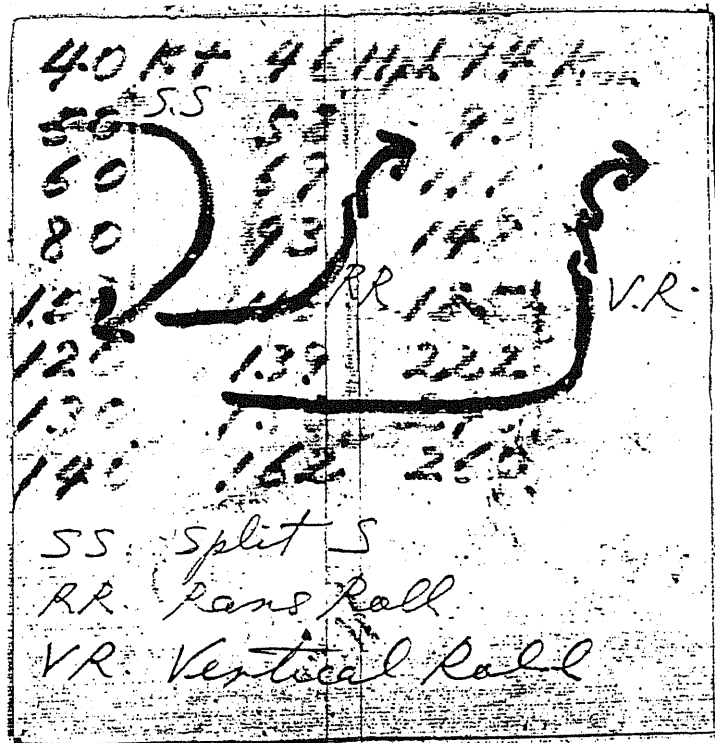 40 Kt 46 Mph 74 Km
S.S
50 57
60 69 111
80 93 148
RR V.R.
120 139 222
130
140 162 260
SS. Split S
RR. Rans Roll
VR. Vertical Roll